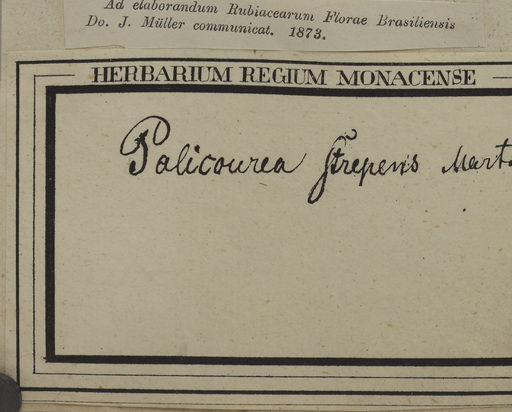 Ad elaborandum Rubiacearum Florae Brasiliensis
Do. J. Müller communicat. 1873.
HERBARIUM REGIUM MONACENSE
Palicourea strepens Mart.